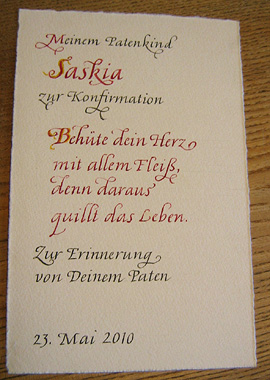 Meinem Patenkind
Saskia
zur Konfirmation
Behüte dein Herz
mit allem Fleiß,
denn daraus
quillt das Leben.
Zur Erinnerung
von Deinem Paten
23. Mai 2010